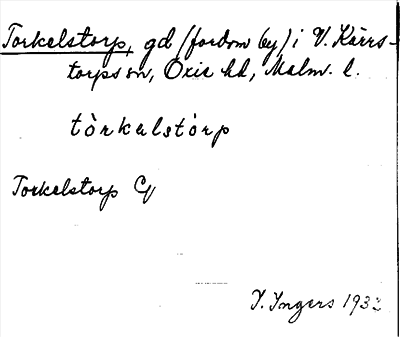 Torkelstorp, gd (fordom by) i V. Kärrs-
torps sn, Oxie hd, Malm. l.
tòrkalstórp
Torkelstorp Cy
I. Ingers 1932